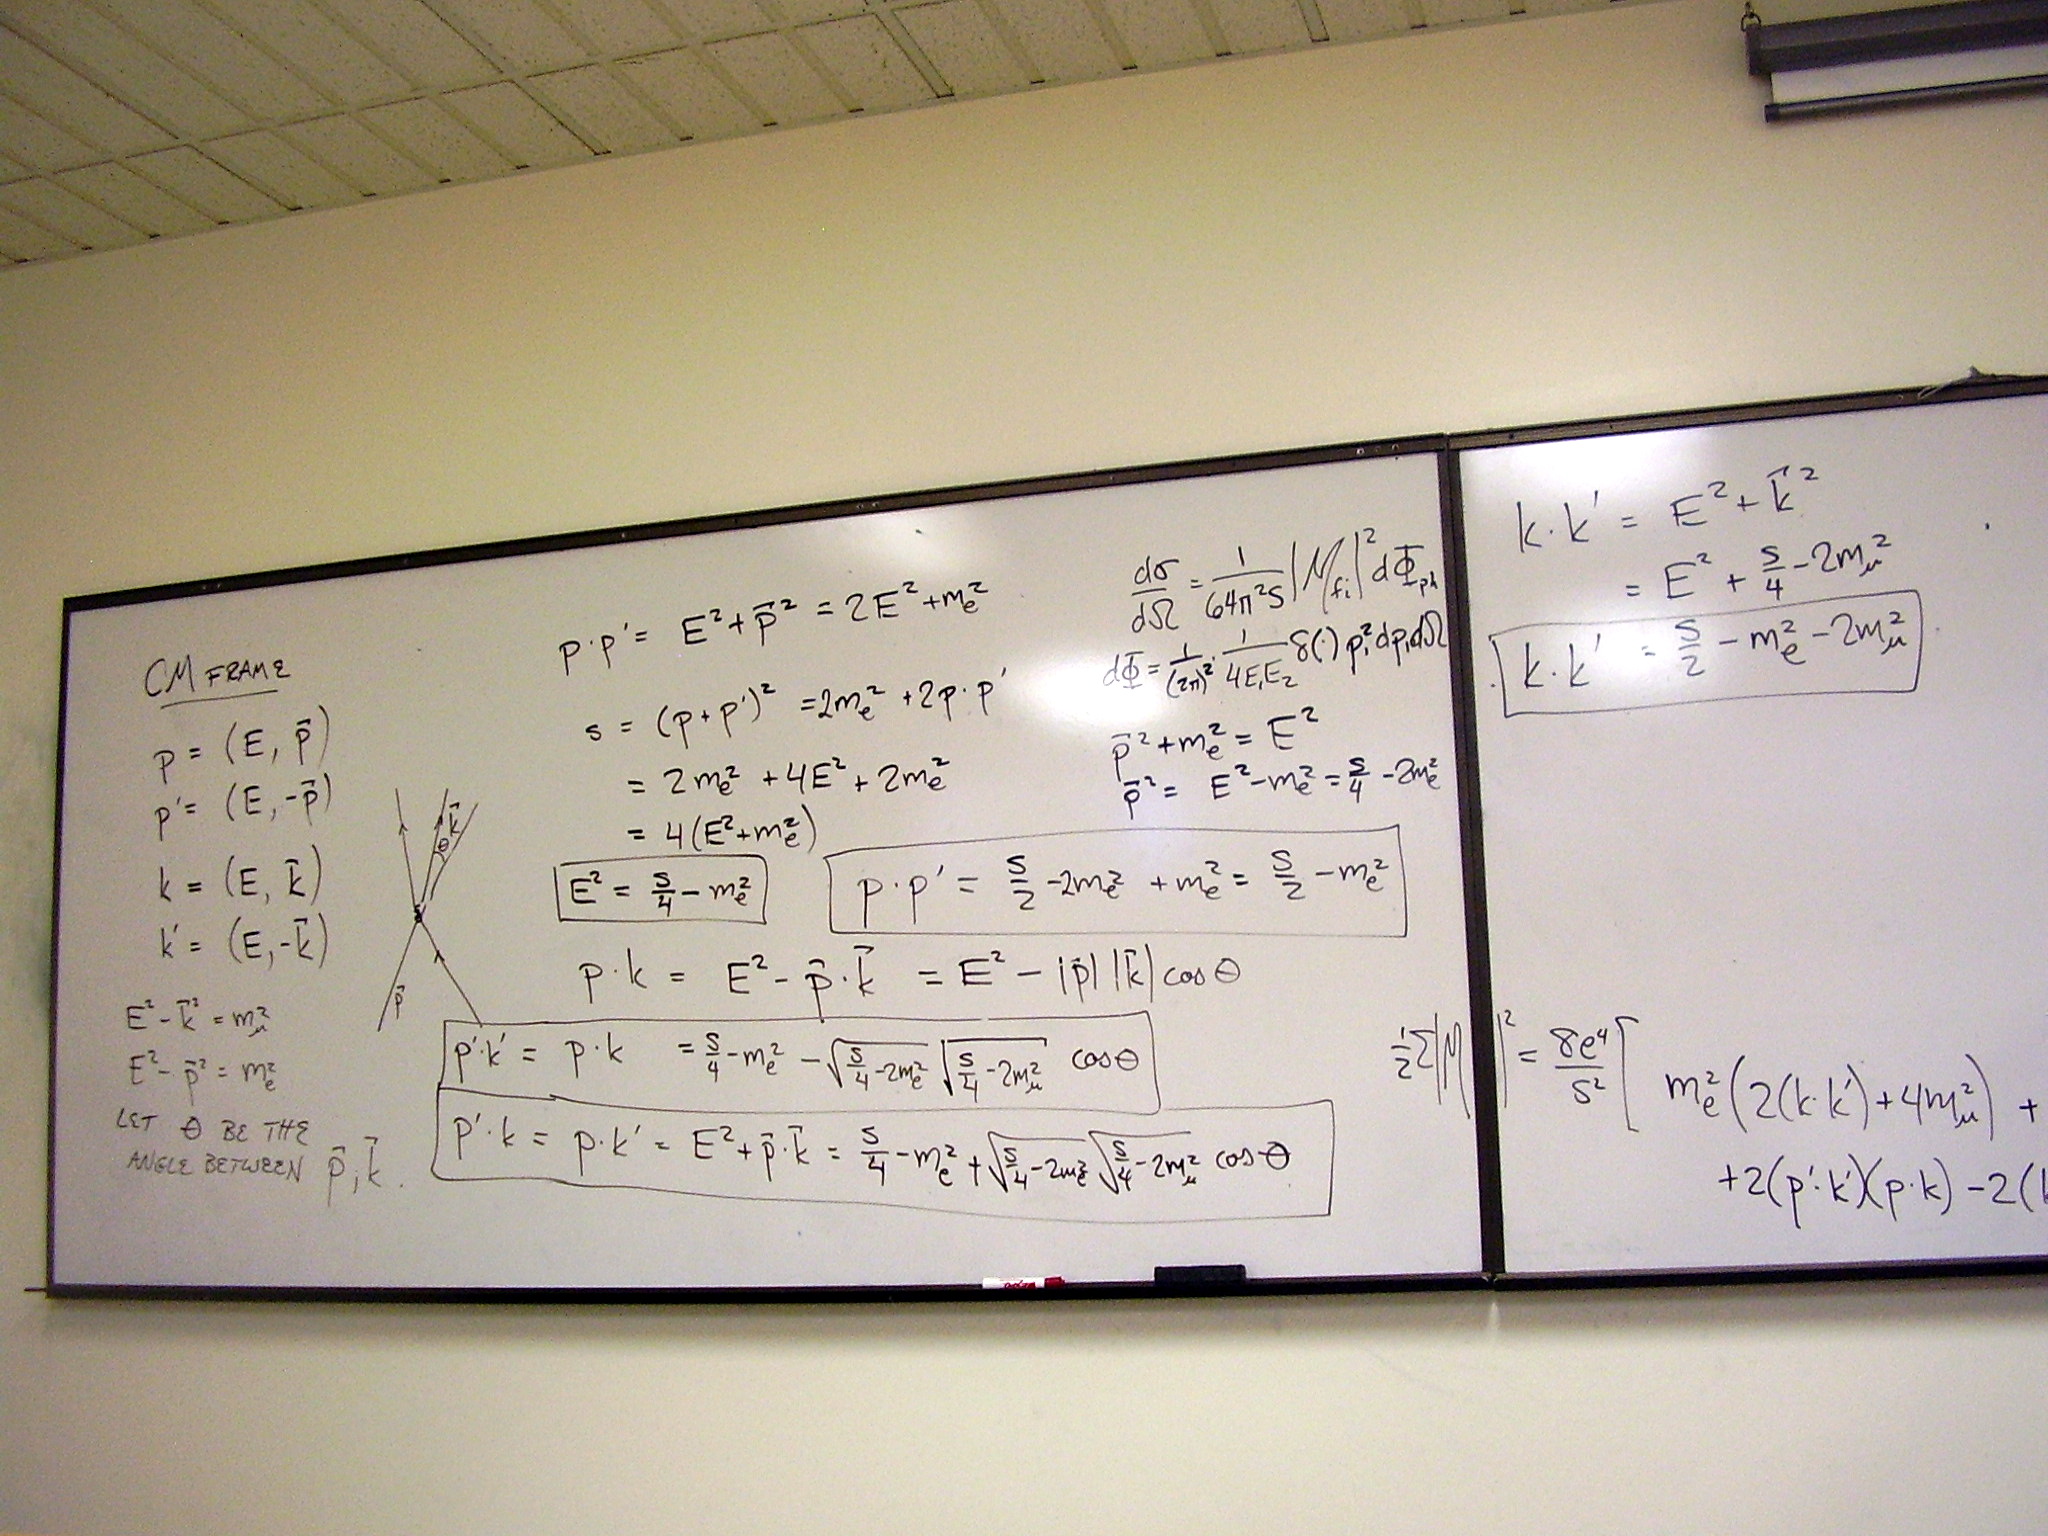 CM FRAME
p = (E, p⃗)
p' = (E, -p⃗)
k = (E, k⃗)
k' = (E, -k⃗)
E² - k⃗² = m_μ²
E² - p⃗² = m_e²
LET θ BE THE
ANGLE BETWEEN p⃗, k⃗.
k⃗
θ
p⃗
p·p' = E² + p⃗² = 2E² + m_e²
s = (p + p')² = 2m_e² + 2p·p'
= 2m_e² + 4E² + 2m_e²
= 4(E² + m_e²)
E² = s/4 - m_e²
p·p' = s/2 - 2m_e² + m_e² = s/2 - m_e²
p·k = E² - p⃗·k⃗ = E² - |p⃗| |k⃗| cos θ
p'·k' = p·k = s/4 - m_e² - √(s/4 - 2m_e²) √(s/4 - 2m_μ²) cos θ
p'·k = p·k' = E² + p⃗·k⃗ = s/4 - m_e² + √(s/4 - 2m_e²) √(s/4 - 2m_μ²) cos θ
dσ/dΩ = 1/(64π²s) |M_fi|² dΦ_ph
dΦ = 1/(2π)² · 1/(4E₁E₂) δ(·) p₁² dp₁ dΩ
p⃗² + m_e² = E²
p⃗² = E² - m_e² = s/4 - 2m_e²
k·k' = E² + k⃗²
= E² + s/4 - 2m_μ²
k·k' = s/2 - m_e² - 2m_μ²
½ Σ|M|² = 8e⁴/s² [ m_e² (2(k·k') + 4m_μ²) +
+ 2(p'·k')(p·k) - 2(k